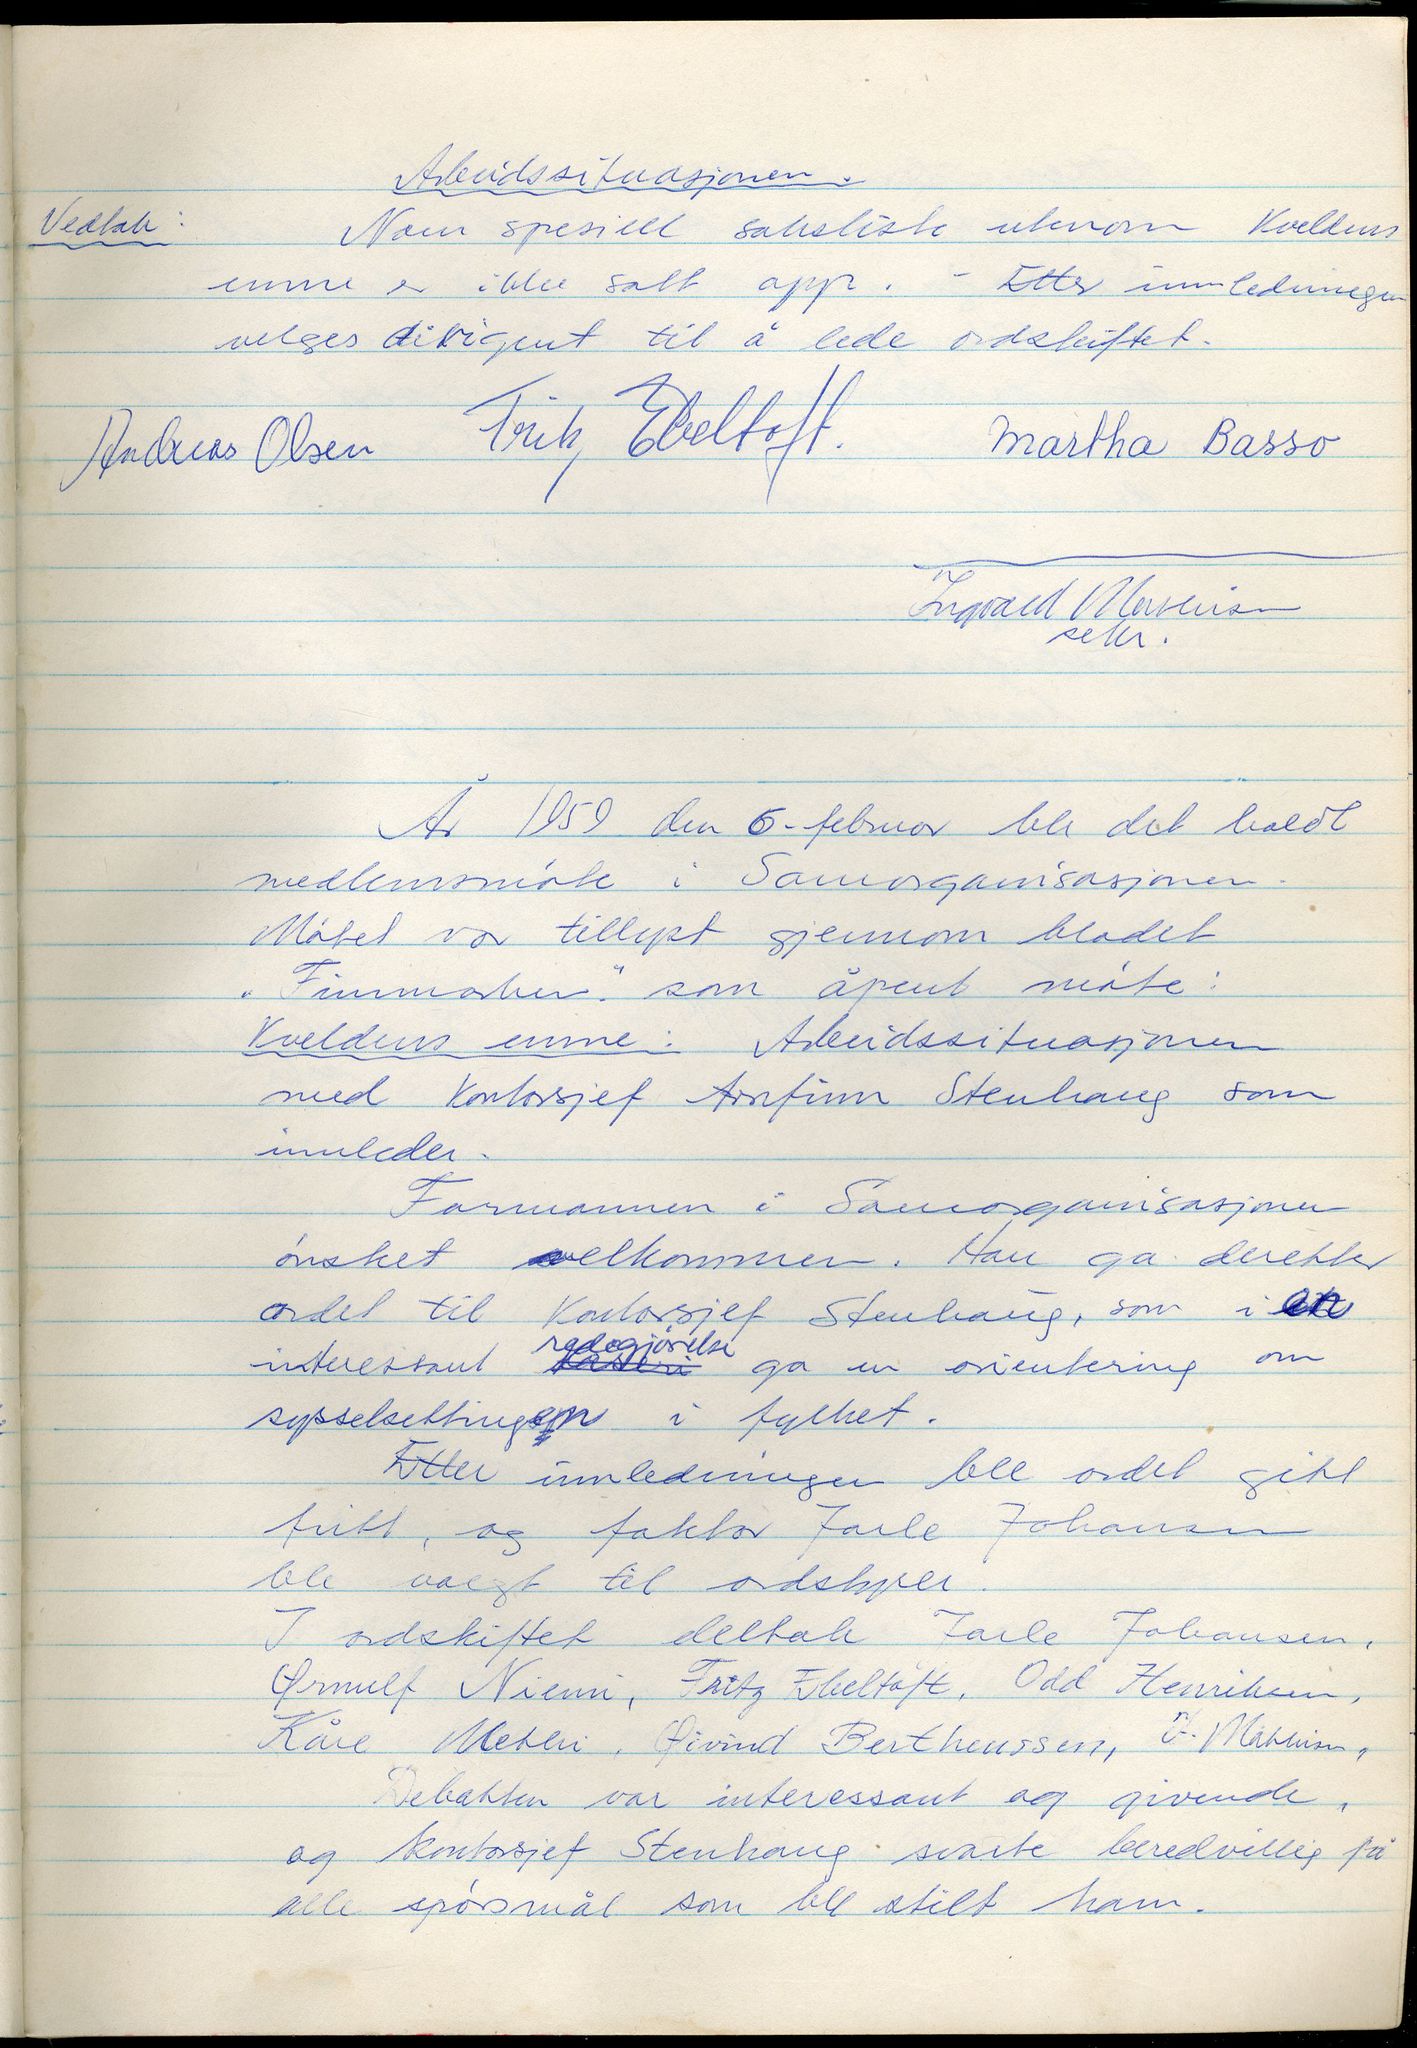 Arbeidssituasjonen.
Vedtak: Noen spesiell saksliste utenom kveldens
emne er ikke satt opp. - Etter innledningen
velges dirigent til å lede ordskiftet.
Andreas Olsen Fritz Ebeltoft. Martha Basso
Ingvald
sekr.
År 1959 den 6. februar ble det holdt
medlemsmöte i Samorganisasjonen.
Mötet var tillyst gjennom bladet
"Finnmarken" som åpent möte:
Kveldens emne: Arbeidssituasjonen
med kontorsjef Arnfinn Stenhaug som
innleder.
Formannen i Samorganisasjonen
önsket velkommen. Han ga deretter
ordet til kontorsjef Stenhaug, som i en
interessant redegjörelse ga en orientering om
sysselsettingen i fylket.
Etter innledningen ble ordet gitt
fritt, og faktor Jarle Johansen
ble valgt til ordstyrer.
I ordskiftet deltok Jarle Johansen,
Ørnulf Niemi, Fritz Ebeltoft, Odd Henriksen,
Kåre Methi, Øivind Bertheussen, I. Mathisen,
Debatten var interessant og givende,
og kontorsjef Stenhaug svarte beredvillig på
alle spörsmål som ble stilt ham.